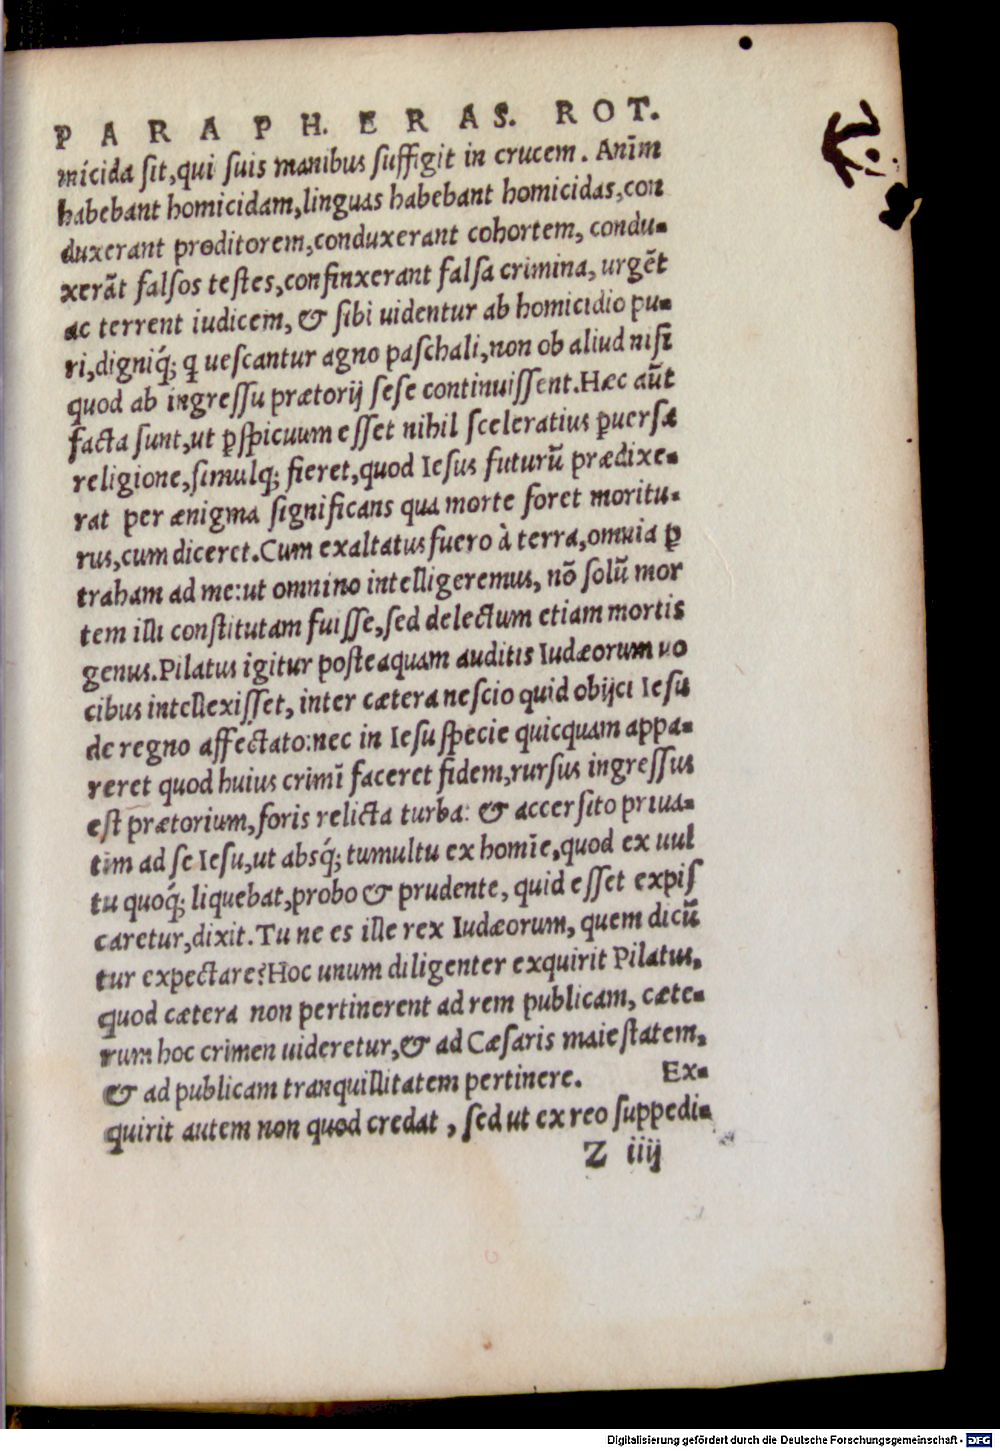 PARAPH. ERAS. ROT.
micida sit,qui suis manibus suffigit in crucem. Anim̄
habebant homicidam,linguas habebant homicidas,con
duxerant proditorem,conduxerant cohortem, condu-
xerãt falsos testes,confinxerant falsa crimina, urgēt
ac terrent iudicem, & sibi uidentur ab homicidio pu-
ri,digniq́; ꝗ uescantur agno paschali,non ob aliud nisi
quod ab ingressu prætorij sese continuissent.Hæc aūt
facta sunt,ut ꝑspicuum esset nihil sceleratius ꝑuersæ
religione,simulq; fieret,quod Iesus futurū prædixe-
rat per ænigma significans qua morte foret moritu-
rus,cum diceret.Cum exaltatus fuero à terra,omnia ꝑ
traham ad me:ut omnino intelligeremus, nō solū mor
tem illi constitutam fuisse,sed delectum etiam mortis
genus.Pilatus igitur posteaquam auditis Iudæorum uo
cibus intellexisset, inter cætera nescio quid obijci Iesu
de regno affectato:nec in Iesu specie quicquam appa-
reret quod huius crimī faceret fidem,rursus ingressus
est prætorium,foris relicta turba: & accersito priua-
tim ad se Iesu,ut absq́; tumultu ex homīe,quod ex uul
tu quoq́; liquebat,probo & prudente, quid esset expis
caretur,dixit.Tu ne es ille rex Iudæorum, quem dicū
tur expectare?Hoc unum diligenter exquirit Pilatus,
quod cætera non pertinerent ad rem publicam, cæte-
rum hoc crimen uideretur,& ad Cæsaris maiestatem,
& ad publicam tranquillitatem pertinere. Ex-
quirit autem non quod credat , sed ut ex reo suppedi-
Z iiij
Digitalisierung gefördert durch die Deutsche Forschungsgemeinschaft - DFG